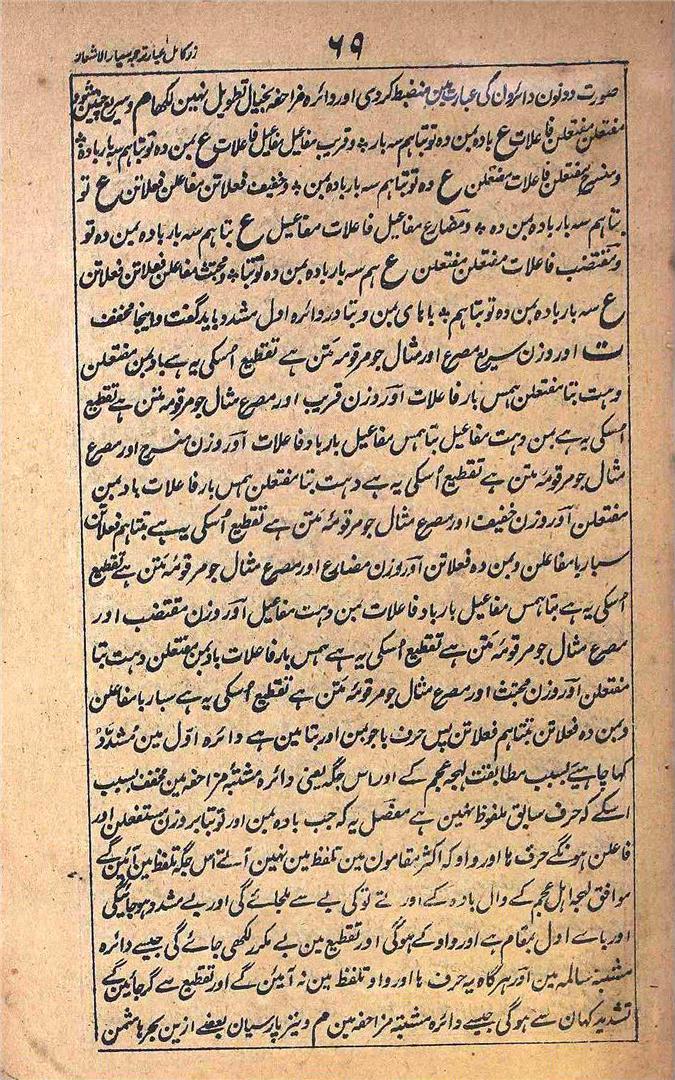 زر کامل عیار ترجمہ معیار الاشعار
۶۹
صورت دونون دائرون کی عبارت مین منضبط کردی اور دائرہ مزاحفہ بخیال تطویل نہین لکھا م و سریع
مفتعلن مفتعلن فاعلات ع بادہ بمن دہ تو بتا ہم سہ بار و قریب مفاعیل مفاعیل فاعلات ع بمن دہ تو بتا ہم سہ بار بادہ
و منسرح مفتعلن فاعلات مفتعلن ع دہ تو بتا ہم سہ بار بادہ بمن و خفیف فعلاتن مفاعلن فعلاتن ع تو
بتا ہم سہ بار بادہ بمن دہ و مضارع مفاعیل فاعلات مفاعیل ع بتا ہم سہ بار بادہ بمن دہ تو
و مقتضب فاعلات مفتعلن مفتعلن ع ہم سہ بار بادہ بمن دہ تو بتا و مجتث مفاعلن فعلاتن فعلاتن
ع سہ بار بادہ بمن دہ تو بتا ہم با بای بمن و بتا در دائرہ اول مشدد باید گفت و اینجا مخفف
ت اور وزن سریع مصرع اور مثال جو مرقومہ متن ہے تقطیع اُسکی یہ ہے باد بمن مفتعلن
دہت بتا مفتعلن ہمس بار فاعلات اور وزن قریب اور مصرع مثال جو مرقومہ متن ہے تقطیع
اُسکی یہ ہے بمن دہت مفاعیل بتا ہمس مفاعیل بار باد فاعلات اور وزن منسرح اور مصرع
مثال جو مرقومہ متن ہے تقطیع اُسکی یہ ہے دہت بتا مفتعلن ہمس بار فاعلات باد بمن
مفتعلن اور وزن خفیف اور مصرع مثال جو مرقومہ متن ہے تقطیع اُسکی یہ ہے بتا ہم فعلاتن
سبار با مفاعلن و بمن دہ فعلاتن اور وزن مضارع اور مصرع مثال جو مرقومہ متن ہے تقطیع
اُسکی یہ ہے بتا ہمس مفاعیل بار باد فاعلات بمن دہت مفاعیل اور وزن مقتضب اور
مصرع مثال جو مرقومہ متن ہے تقطیع اُسکی یہ ہے ہمس بار فاعلات باد بمن مفتعلن دہت بتا
مفتعلن اور وزن مجتث اور مصرع مثال جو مرقومہ متن ہے تقطیع اُسکی یہ ہے سبار با مفاعلن
و بمن دہ فعلاتن بتا ہم فعلاتن پس حرف با جو بمن اور بتا مین ہے دائرہ اوّل مین مُشدّد
کہا چاہیے بسبب مطابقت لہجہ عجم کے اور اس جگہ یعنی دائرہ مشتبہ مزاحفہ مین مخفف بسبب
اسکے کہ حرف سابق ملفوظ نہین ہے مفصل یہ کہ جب بادہ بمن اور تو بتا بر وزن مستفعلن اور
فاعلن ہونگے حرف ہا اور واو کہ اکثر مقامون مین تلفظ مین نہین آتے اس جگہ تلفظ مین آئین گے
موافق لہجہ اہل عجم کے دال بادہ کے اور تے تو کی بے سے ملجائے گی اور بے مشدد ہوجائیگی
اور باے اول بمقام ہے اور واو کے ہوگی اور تقطیع مین بے مکرر لکھی جائے گی جیسے دائرہ
مشتبہ سالمہ مین اور ہرگاہ یہ حرف ہا اور واو تلفظ مین نہ آئین گے اور تقطیع سے گرجائین گے
تشدید کہان سے ہوگی جیسے دائرہ مشتبہ مزاحفہ مین م و نیز پارسیان بعضے ازین بحرہا مثمن